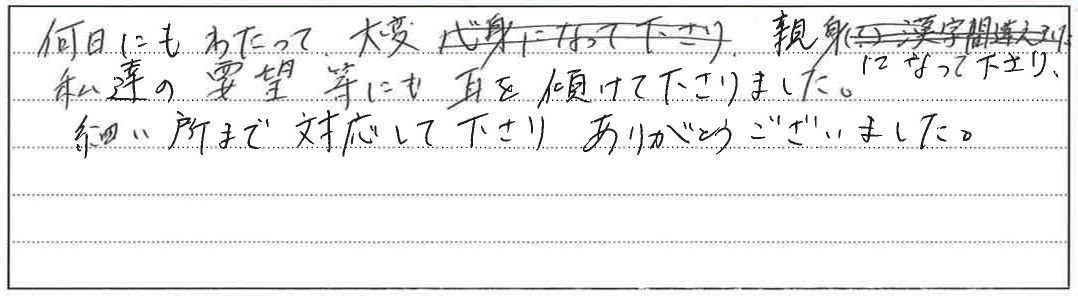 何日にもわたって 大変 心身になって下さり、親身
になって下さり、
私達の要望等にも耳を傾けて下さりました。
細い所まで対応して下さり ありがとうございました。